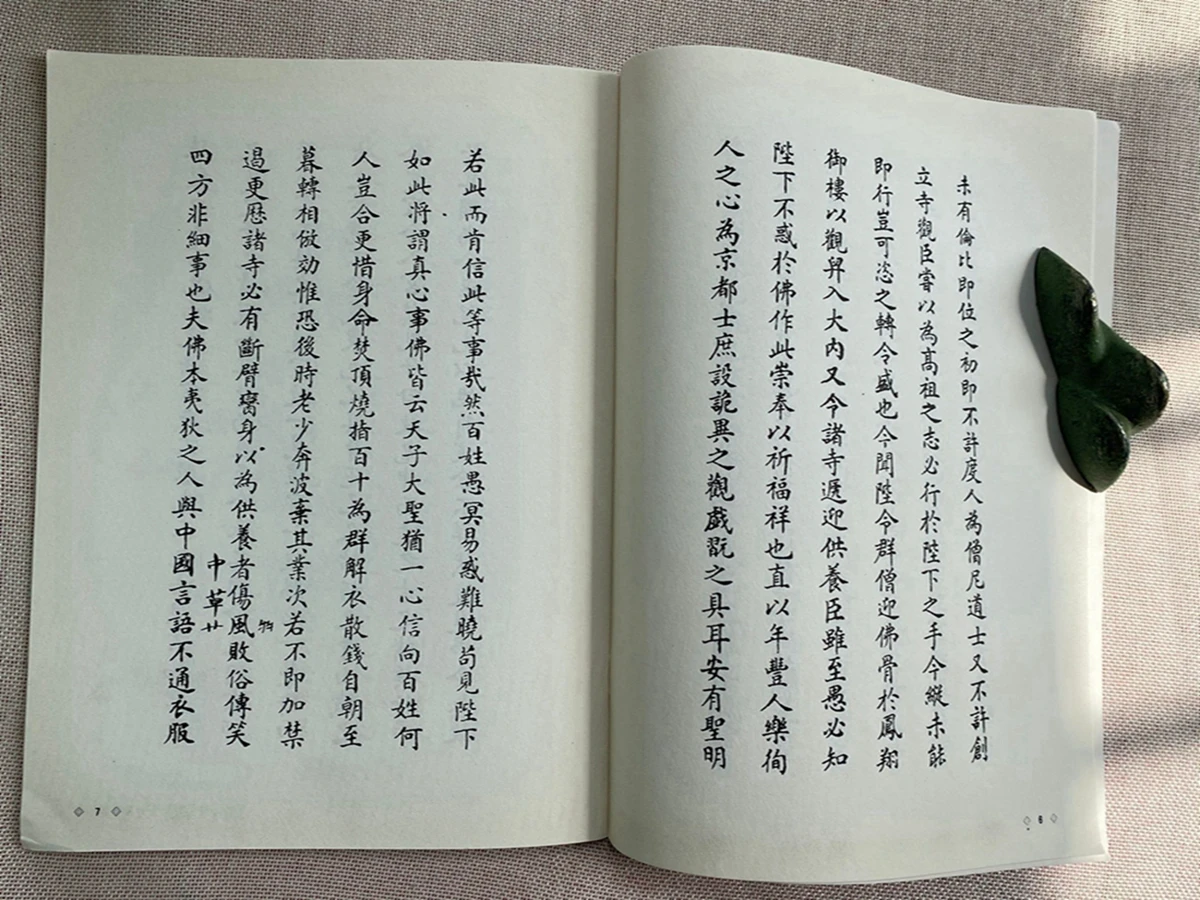 未有倫比即位之初即不許度人為僧尼道士又不許創
立寺觀臣嘗以為高祖之志必行於陛下之手今縱未能
即行豈可恣之轉令盛也今聞陛令群僧迎佛骨於鳳翔
御樓以觀舁入大內又令諸寺遞迎供養臣雖至愚必知
陛下不惑於佛作此崇奉以祈福祥也直以年豐人樂徇
人之心為京都士庶設詭異之觀戲翫之具耳安有聖明
6
若此而肯信此等事哉然百姓愚冥易惑難曉苟見陛下
如此將謂真心事佛皆云天子大聖猶一心信向百姓何
人豈合更惜身命焚頂燒指百十為群解衣散錢自朝至
暮轉相倣効惟恐後時老少奔波棄其業次若不即加禁
遏更歷諸寺必有斷臂臠身以為供養者傷風敗俗傳笑
四方非細事也夫佛本夷狄之人與中國言語不通衣服
中草廿
7